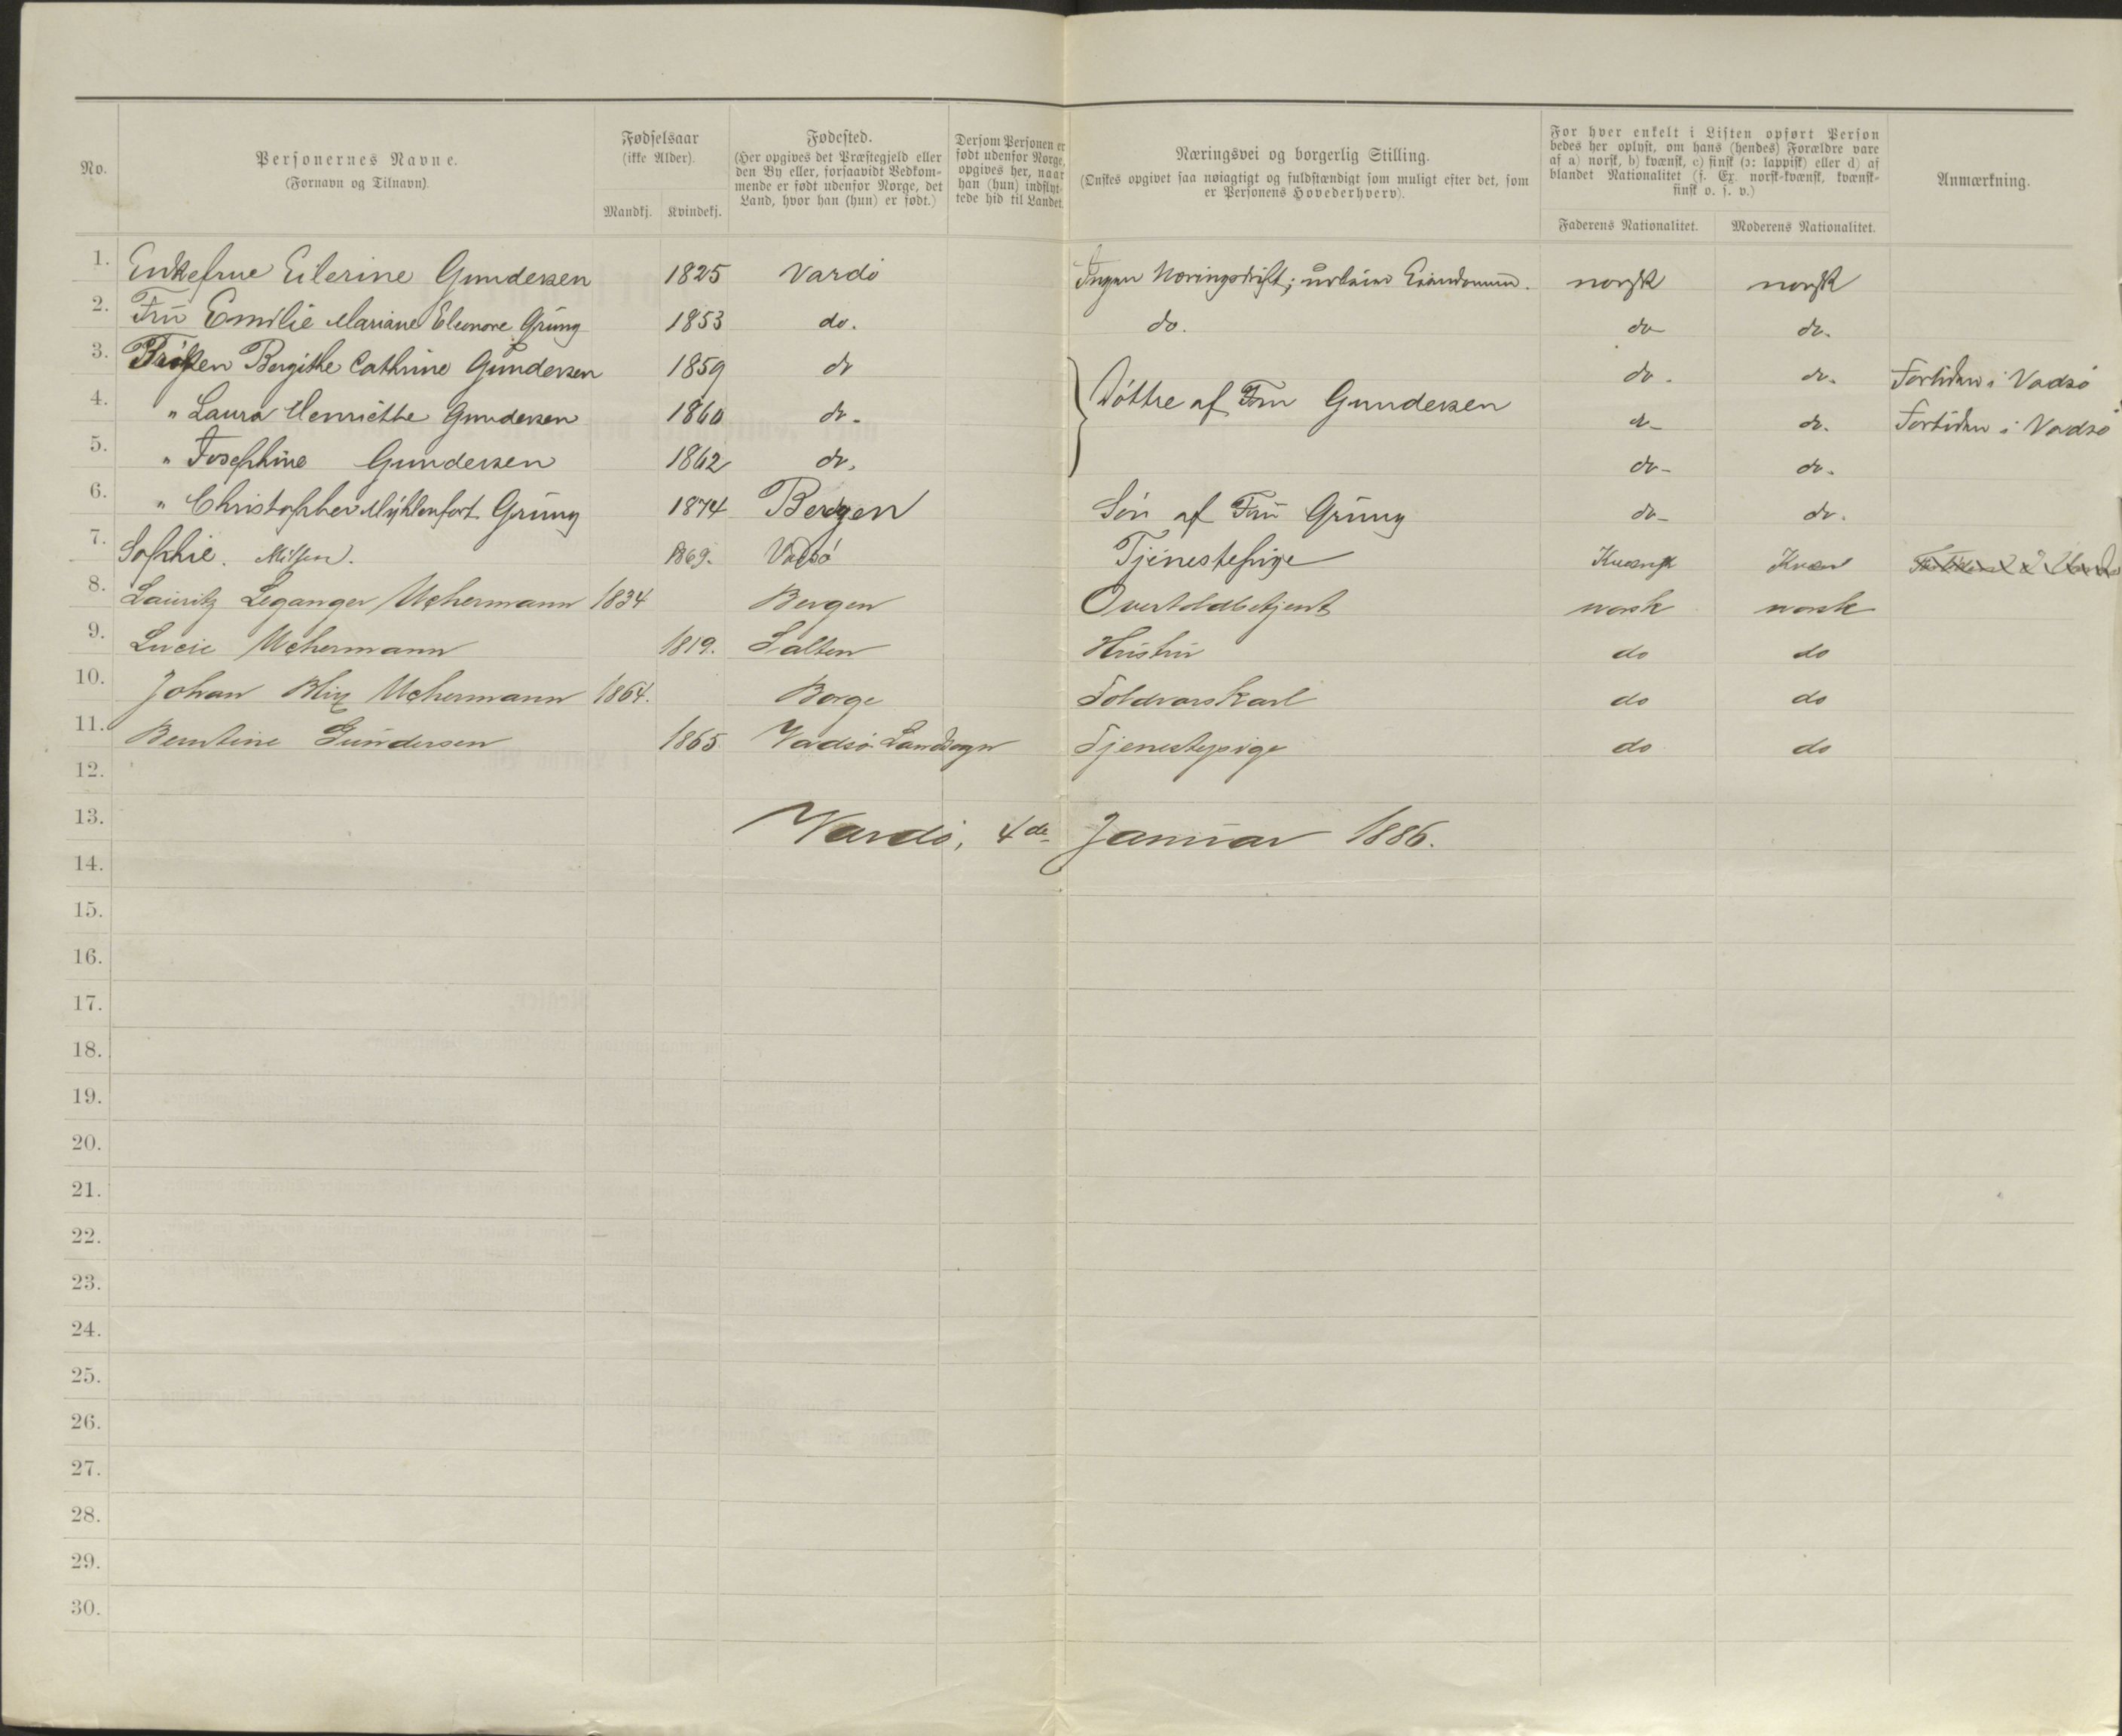 No.
Personernes Navne.
(Fornavn og Tilnavn).
Fødselsaar
(ikke Alder).
Mandkj. Kvindekj.
Fødested.
(Her opgives det Præstegjeld eller
den By eller, forsaavidt Vedkom-
mende er født udenfor Norge, det
Land, hvor han (hun) er født.)
Dersom Personen er
født udenfor Norge,
opgives her, naar
han (hun) indflyt-
tede hid til Landet.
Næringsvei og borgerlig Stilling.
(Ønskes opgivet saa nøiagtigt og fuldstændigt som muligt efter det, som
er Personens Hovederhverv).
For hver enkelt i Listen opført Person
bedes her oplyst, om hans (hendes) Forældre vare
af a) norsk, b) kvænsk, c) finsk (ɔ: lappisk) eller d) af
blandet Nationalitet (f. Ex. norsk-kvænsk, kvænsk-
finsk o. s. v.)
Faderens Nationalitet. Moderens Nationalitet.
Anmærkning.
1. Enkefrue Eilerine Gundersen 1825 Vardö Ingen Næringsdrift; Eiendomme. norsk norsk
2. Frü Emilie Mariane Eleonore Grüng 1853 do. do. do do.
3. Fröken Bergithe Cathrine Gundersen 1859 do Döttre af Fru Gundersen do. do. Fortiden i Vadsö
4. " Laura Henriette Gundersen 1860 do. do do. Fortiden i Vadsö
5. " Josephine Gundersen 1862 do. do do.
6. " Christopher Myhlenfort Grüng 1874 Bergen Sön af Frü Grüng do do.
7. Sophie. 1869. Vadsö Tjenestepige Kvænsk Kvæn
8. Lauritz Leganger Uchermann 1834 Bergen Overtoldbetjent norsk norsk
9. Lucie Uchermann 1819. Salten Hustru do do
10. Johan Blix Uchermann 1864. Borge Toldvorskarl do do
11. Berntine Gundersen 1865 Vadsö Landsogn Tjenestepige do do
12.
13. Vardö, 4de Januar 1886.
14.
15.
16.
17.
18.
19.
20.
21.
22.
23.
24.
25.
26.
27.
28.
29.
30.